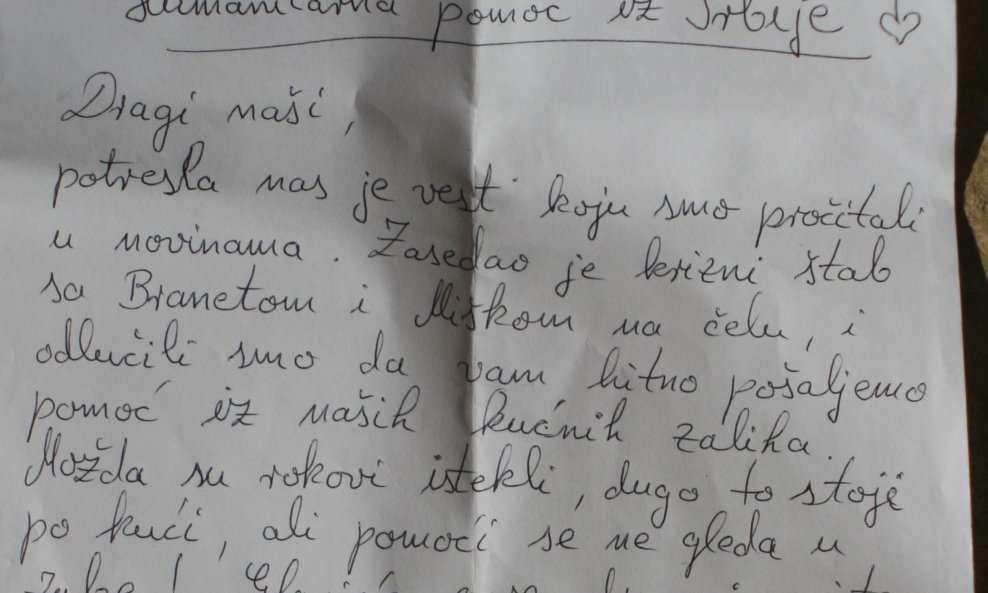 Humanitarna pomoć iz Srbije
Dragi naši,
potresla nas je vest koju smo pročitali
u novinama. Zasedao je krizni štab
sa Branetom i Miškom na čelu, i
odlučili smo da vam hitno pošaljemo
pomoć iz naših kućnih zaliha.
Možda su rokovi istekli, dugo to stoji
po kući, ali pomoći se ne gleda u